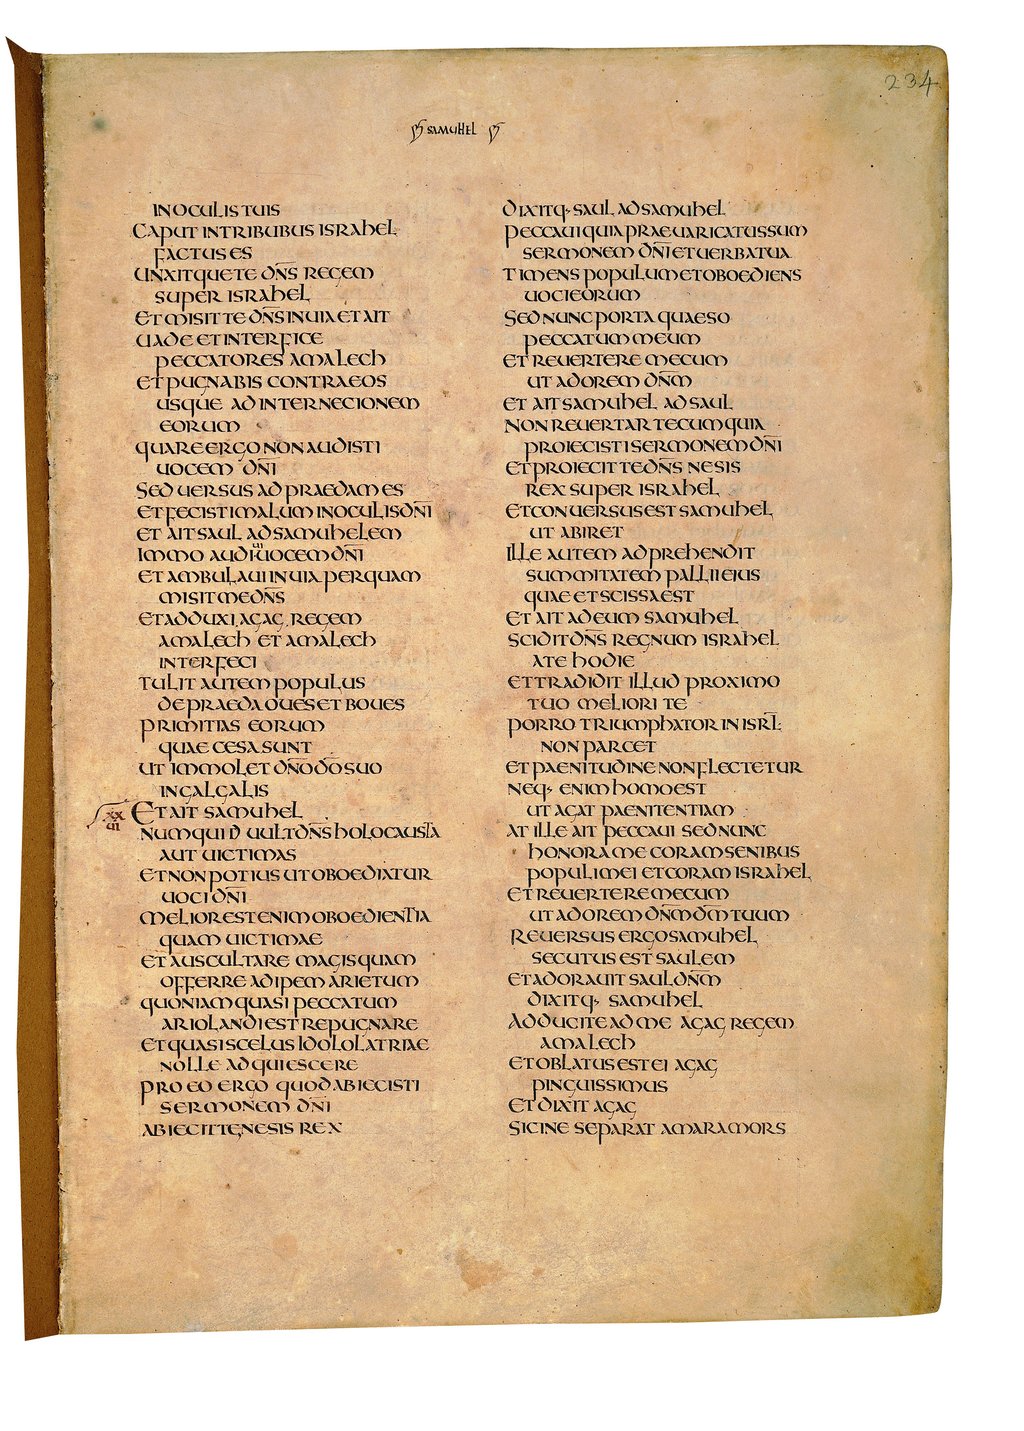 234
SAMUHEL
IN OCULIS TUIS
CAPUT IN TRIBUBUS ISRAHEL
FACTUS ES
UNXITQUE TE DN̄S REGEM
SUPER ISRAHEL
ET MISIT TE DN̄S IN UIA ET AIT
UADE ET INTERFICE
PECCATORES AMALECH
ET PUGNABIS CONTRA EOS
USQUE AD INTERNECIONEM
EORUM
QUARE ERGO NON AUDISTI
UOCEM DN̄I
SED UERSUS AD PRAEDAM ES
ET FECISTI MALUM IN OCULIS DN̄I
ET AIT SAUL AD SAMUHELEM
IMMO AUDIUI UOCEM DN̄I
ET AMBULAUI IN UIA PER QUAM
MISIT ME DN̄S
ET ADDUXI AGAG REGEM
AMALECH ET AMALECH
INTERFECI
TULIT AUTEM POPULUS
DE PRAEDA OUES ET BOUES
PRIMITIAS EORUM
QUAE CESA SUNT
UT IMMOLET DN̄O DŌ SUO
IN GALGALIS
XXVI ET AIT SAMUHEL
NUMQUID UULT DN̄S HOLOCAUSTA
AUT UICTIMAS
ET NON POTIUS UT OBOEDIATUR
UOCI DN̄I
MELIOR EST ENIM OBOEDIENTIA
QUAM UICTIMAE
ET AUSCULTARE MAGIS QUAM
OFFERRE ADIPEM ARIETUM
QUONIAM QUASI PECCATUM
ARIOLANDI EST REPUGNARE
ET QUASI SCELUS IDOLOLATRIAE
NOLLE ADQUIESCERE
PRO EO ERGO QUOD ABIECISTI
SERMONEM DN̄I
ABIECIT TE NE SIS REX
DIXITQ· SAUL AD SAMUHEL
PECCAUI QUIA PRAEUARICATUS SUM
SERMONEM DN̄I ET UERBA TUA
TIMENS POPULUM ET OBOEDIENS
UOCI EORUM
SED NUNC PORTA QUAESO
PECCATUM MEUM
ET REUERTERE MECUM
UT ADOREM DN̄M
ET AIT SAMUHEL AD SAUL
NON REUERTAR TECUM QUIA
PROIECISTI SERMONEM DN̄I
ET PROIECIT TE DN̄S NE SIS
REX SUPER ISRAHEL
ET CONUERSUS EST SAMUHEL
UT ABIRET
ILLE AUTEM ADPREHENDIT
SUMMITATEM PALLII EIUS
QUAE ET SCISSA EST
ET AIT AD EUM SAMUHEL
SCIDIT DN̄S REGNUM ISRAHEL
A TE HODIE
ET TRADIDIT ILLUD PROXIMO
TUO MELIORI TE
PORRO TRIUMPHATOR IN ISRL̄
NON PARCET
ET PAENITUDINE NON FLECTETUR
NEQ· ENIM HOMO EST
UT AGAT PAENITENTIAM
AT ILLE AIT PECCAUI SED NUNC
HONORA ME CORAM SENIBUS
POPULI MEI ET CORAM ISRAHEL
ET REUERTERE MECUM
UT ADOREM DN̄M DM̄ TUUM
REUERSUS ERGO SAMUHEL
SECUTUS EST SAULEM
ET ADORAUIT SAUL DN̄M
DIXITQ· SAMUHEL
ADDUCITE AD ME AGAG REGEM
AMALECH
ET OBLATUS EST EI AGAG
PINGUISSIMUS
ET DIXIT AGAG
SICINE SEPARAT AMARA MORS